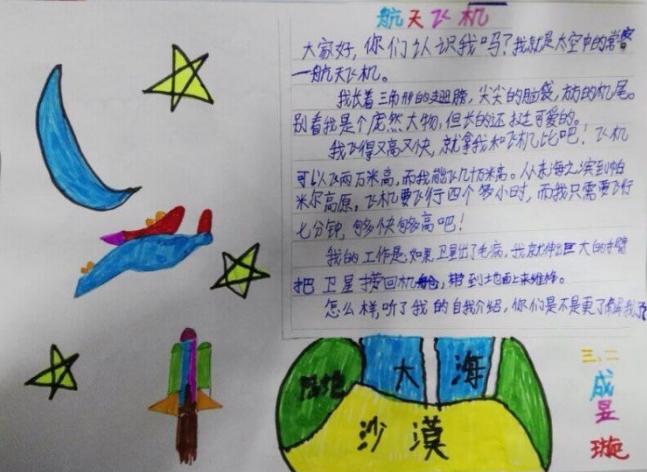 航天飞机
大家好，你们认识我吗？我就是太空中的常客
—航天飞机。
我长着三角形的翅膀，尖尖的脑袋，方方的机尾。
别看我是个庞然大物，但长的还挺可爱的。
我飞得又高又快，就拿我和飞机比吧！飞机
可以飞两万米高，而我能飞几十万米高。从东海之滨到帕
米尔高原，飞机要飞行四个多小时，而我只需要飞行
七分钟，够快够高吧！
我的工作是，如果卫星出了毛病，我就伸出巨大的手臂
把卫星捞回机舱，带到地面上来维修。
怎么样，听了我的自我介绍，你们是不是更了解我了
陆地
大海
沙漠
三、二
成昱璇